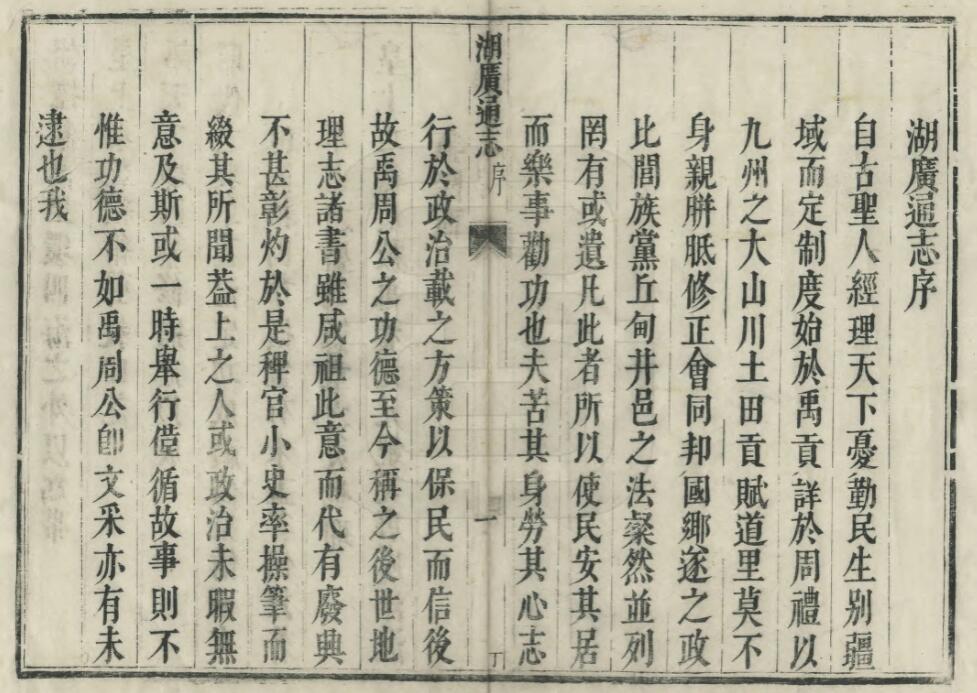 湖廣通志序
自古聖人經理天下憂勤民生别疆
域而定制度始於禹貢詳於周禮以
九州之大山川土田貢賦道里莫不
身親胼胝修正會同却國鄉遂之政
比閭族黨丘甸井邑之法粲然並列
罔有或遺凡此者所以使民安其居
而樂事勸功也夫苦其身勞其心志
湖廣通志 序
一
行於政治載之方策以保民而信後
故禹周公之功德至今稱之後世地
理志諸書雖咸祖此意而代有廢興
不甚彰灼於是稗官小史率操筆而
綴其所聞葢上之人或政治未暇無
意及斯或一時舉行僅循故事則不
惟功德不如禹周公卽文采亦有未
逮也我